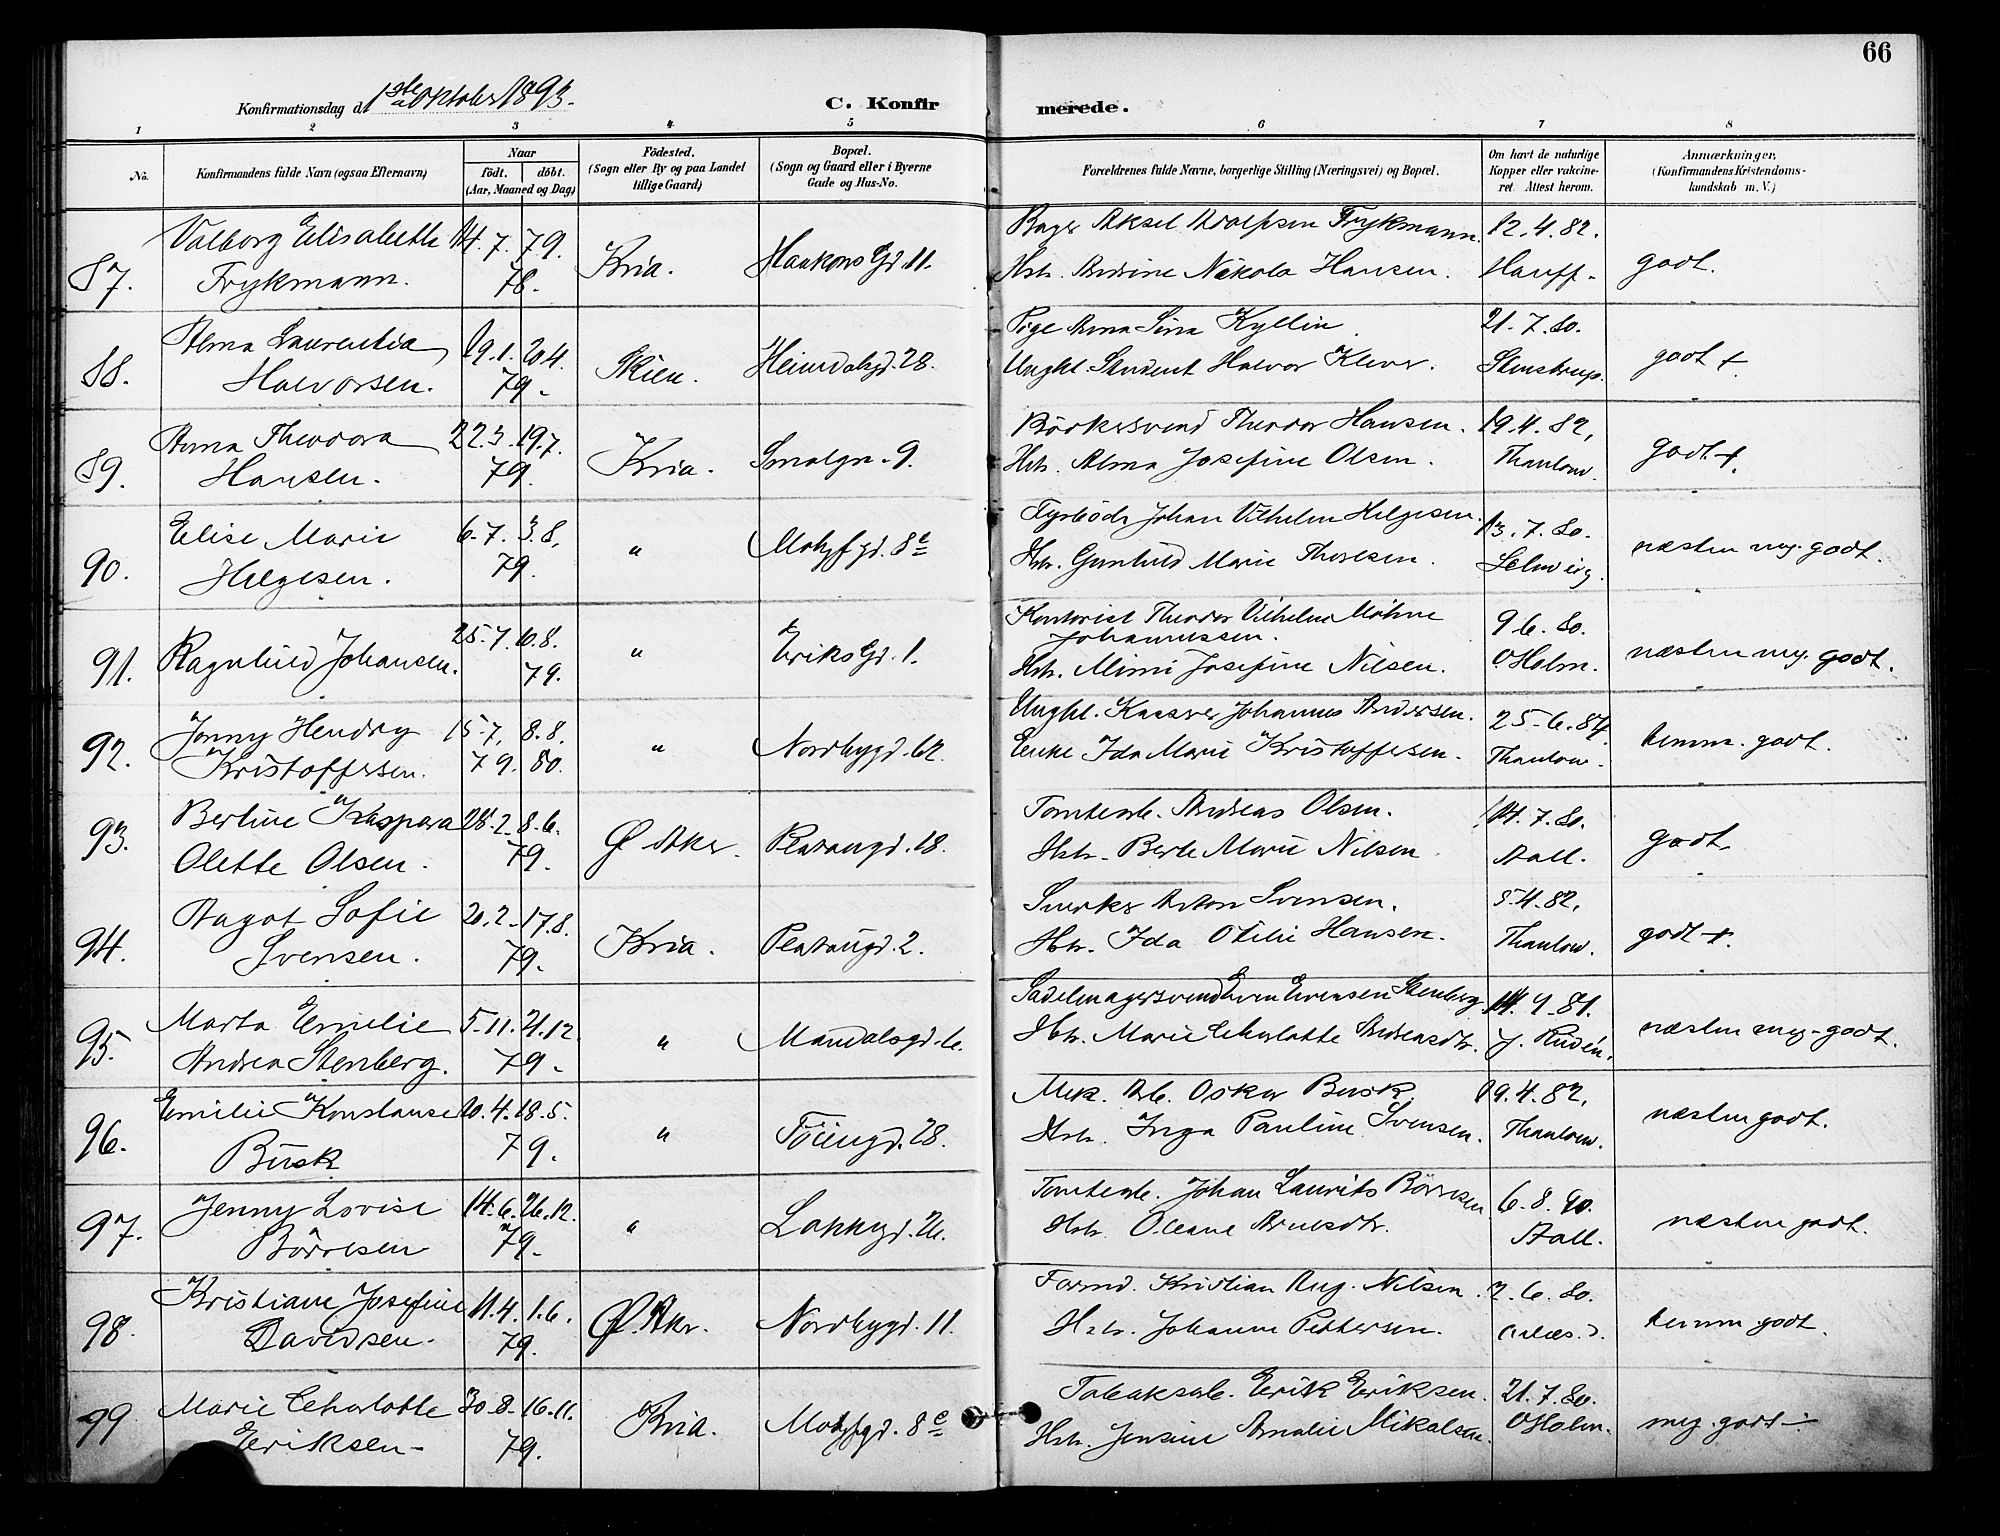 66
Konfirmationsdag d. 1ste Oktober 1893.
C. Konfirmerede.
1 2 3 4 5 6 7 8
No.
Konfirmandens fulde Navn (ogsaa Efternavn)
Naar
födt. döbt.
(Aar, Maaned og Dag)
Födested.
(Sogn eller By og paa Landet
tillige Gaard)
Bopæl.
(Sogn og Gaard eller i Byerne
Gade og Hus-No.
Forældrenes fulde Navne, borgerlige Stilling (Næringsvei) og Bopæl.
Om havt de naturlige
Kopper eller vakcine-
ret. Attest herom.
Anmærkninger,
(Konfirmandens Kristendoms-
kundskab m. V.)
Valborg Elisabeth 14.7. 79. Bager Aksel Adolfsen Frykmann. 12.4.82.
87. Frykmann. 78. Kria. Haakons Gd. 11. Hstr. Andrine Nikola Hansen. Hauff. godt.
Alma Laurentia 29.1. 20.4. Pige Anna Sina Kyllin 21.7.80.
88. Halvorsen. 79. Skien. Heimdalsgd. 28. Unghl. Student Halvor Klever. Stenstrup. godt +.
Anna Theodora 22.3. 19.7. Bödkersvend Theodor Hansen. 19.4.82,
89. Hansen. 79. Kria. Smalgn. 9. Hstr. Alma Josefine Olsen. Thaulow. godt +.
Elise Marie 6.7. 3.8. Fyrböder Johan Vilhelm Helgesen. 13.7.80.
90. Helgesen. 79. " Motzfgd. 8c Hstr. Gunhild Marie Thoresen. Selmer næsten meg. godt.
Kontorist Theodor Vilhelm
91. Ragnhild Johansen. 25.7. 10.8. 79. " Eriks Gd. 1. Johannessen. 9.6.80.
Hstr. Mimi Josefine Nilsen. O Holm. næsten meg. godt.
Jenny Hendry 15.7. 8.8. Unghl. Kasserer Johannes Andersen. 25.6.84.
92. Kristoffersen. 79. 80. " Nordbygd. 62. Enke Ida Marie Kristoffersen. Thaulow. temm. godt.
Bertine Kaspara 28.2. 8.6. Tomtearb. Andreas Olsen. 14.7.80.
93. Olette Olsen. 79. Ø Aker. Platougd. 18. Hstr. Berte Marie Nilsen Aall. godt.
Dagot Sofie 20.2. 17.8. Snerker Anton Svensen. 5.4.82,
94. Svensen. 79. Kria. Platougd. 2. Hstr. Ida Otilie Hansen. Thaulow. godt +.
Marta Emilie 5.11. 21.12. Sadelmagersvend Even Evensen Stenberg 14.9.81.
95. Andrea Stenberg. 79. " Mandalsgd. Hstr. Marie Charlotte Andreasdtr. J. Rudén. næsten meg. godt.
Emilie Konstanse 10.4. 18.5. Mek. Arb. Oskar Busk. 19.4.82,
96. Busk 79. " Töiengd. 28. Hstr. Inga Pauline Svensen. Thaulow. næsten godt.
Jenny Lovise 14.6. 26.12. Tomtearb. Johan Laurits Börresen 6.8.90.
97. Börresen 79. " Lakkegd. 26. Hstr. Oleane Arnesdtr. Aall. næsten godt.
Kristiane Josefine 11.4. 1.6. Formd. Kristian Aug. Nilsen. 2.6.80.
98. Davidsen. 79. Ø. Aker. Nordbygd. 11. Hstr. Johanne Pettersen. temm. godt.
Marie Charlotte 30.8. 16.11. Tobaksarb. Erik Eriksen. 21.7.80.
99 Eriksen. 79. Kria. Motzfgd. 8c Hstr. Jensine Amalie Mikalsen. O Holm. meg. godt ÷